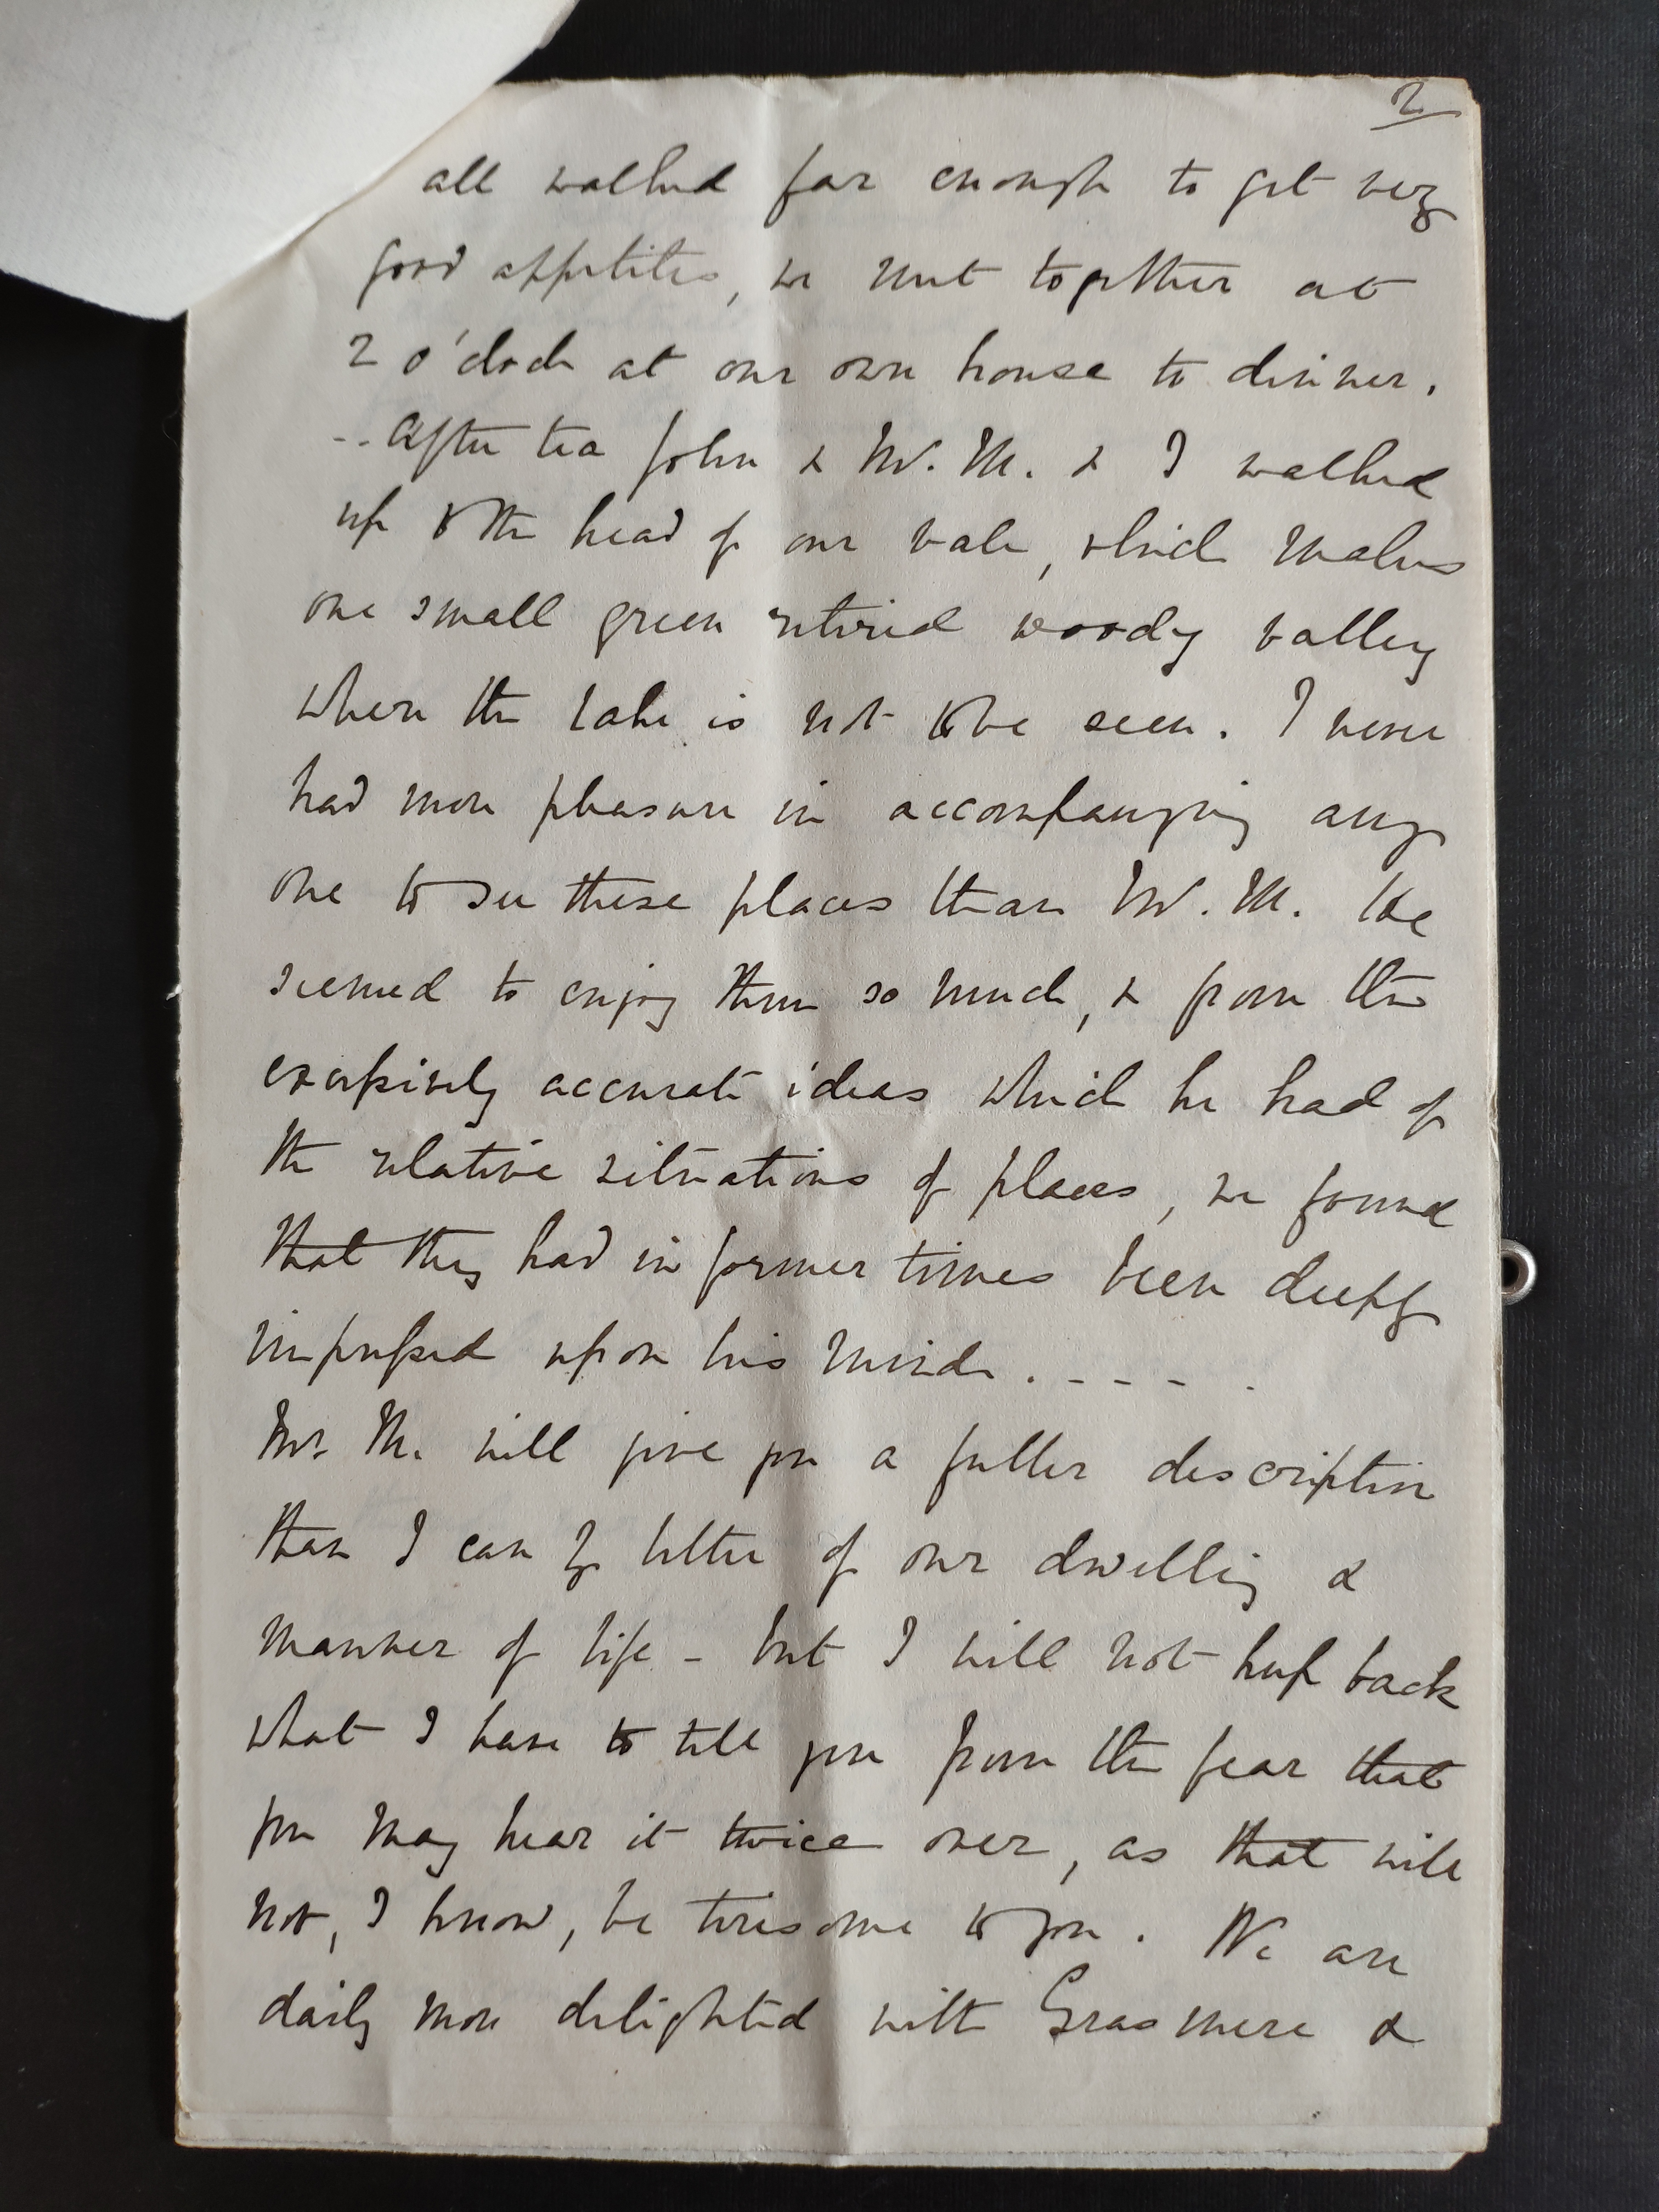 2
all walked far enough to get very
good appetites, we met together at
2 o'clock at our own house to dinner.
-- After tea John & Mr. M. & I walked
up to the head of our vale, which makes
one small green retired woody valley
where the lake is not to be seen. I never
had more pleasure in accompanying any
one to see these places than Mr. M. He
seemed to enjoy them so much, & from the
exceſsively accurate ideas which he had of
the relative situations of places, we found
that they had in former times been deeply
impreſsed upon his mind. - - - - .
Mr. M. will give you a fuller description
than I can by letter of our dwelling &
manner of life - but I will not keep back
what I have to tell you from the fear that
you may hear it twice over, as that will
not, I know, be tiresome to you. We are
daily more delighted with Grasmere &